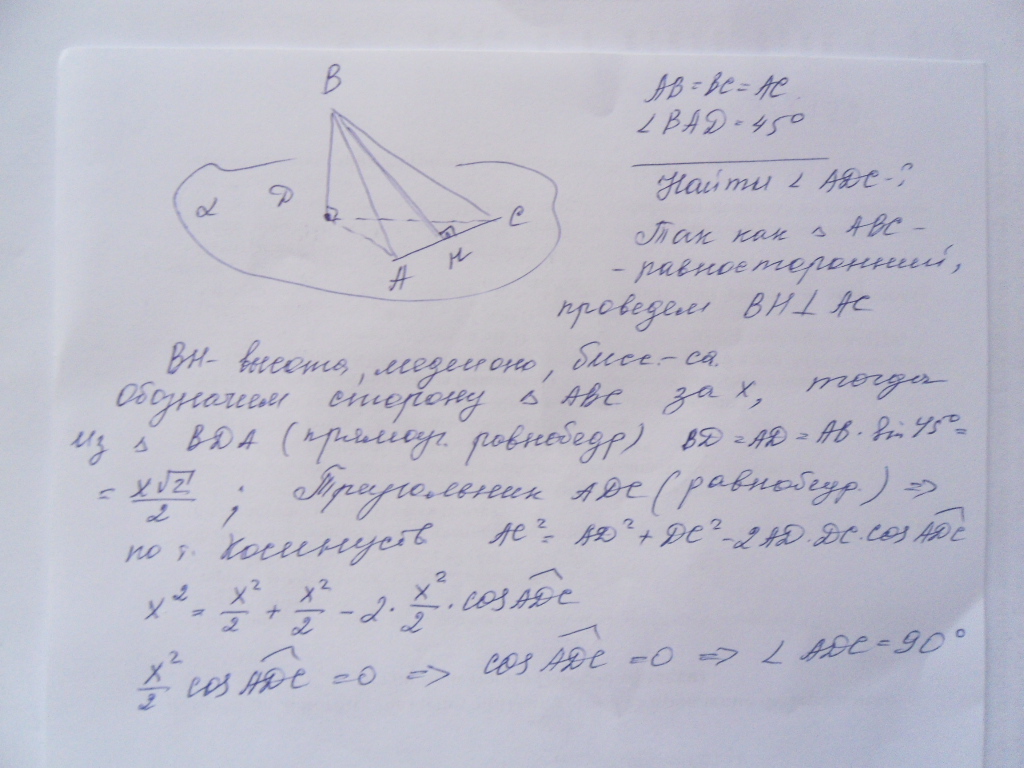 B
AB = BC = AC
∠ BAD = 45°
Найти ∠ ADC - ?
α
D
C
A
H
Так как △ ABC -
- равносторонний,
проведем BH ⊥ AC
BH - высота, медиано, бисс.-са.
Обозначим сторону △ ABC за x, тогда
из △ BDA (прямоуг. равнобедр) BD = AD = AB · Sin 45° =
= x√2/2 ; Треугольник ADC (равнобедр.) =>
по т. Косинусов AC² = AD² + DC² - 2AD · DC · cos ADC
x² = x²/2 + x²/2 - 2 · x²/2 · cos ADC
x²/2 cos ADC = 0 => cos ADC = 0 => ∠ ADC = 90°